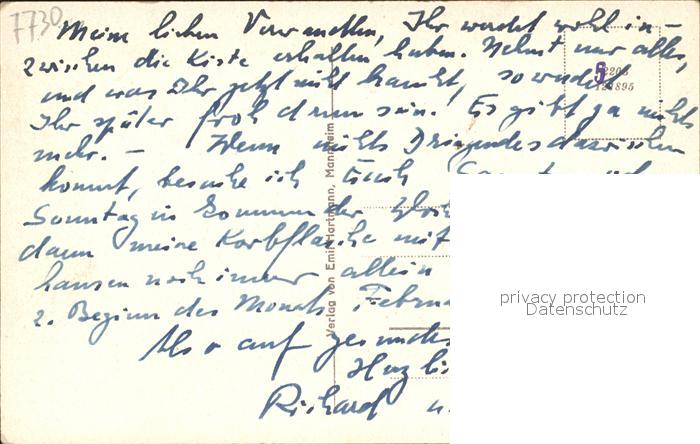 7730
Meine lieben Verwandten, Ihr werdet wohl in-
zwischen die Kiste erhalten haben. Nehmt nur alles,
und was Ihr jetzt nicht braucht, so werdet
Ihr später froh drum sein. Es gibt ja nichts
mehr. – Wenn nichts Dringendes dazwischen
kommt, besuche ich Euch
Sonntag in der
dann meine Korbflasche mit
hausen noch immer allein
2. Beginn des Monats Febru
Also auf gesundes
Herzli
Richard u.
Verlag von Emil Hartmann, Mannheim
privacy protection
Datenschutz